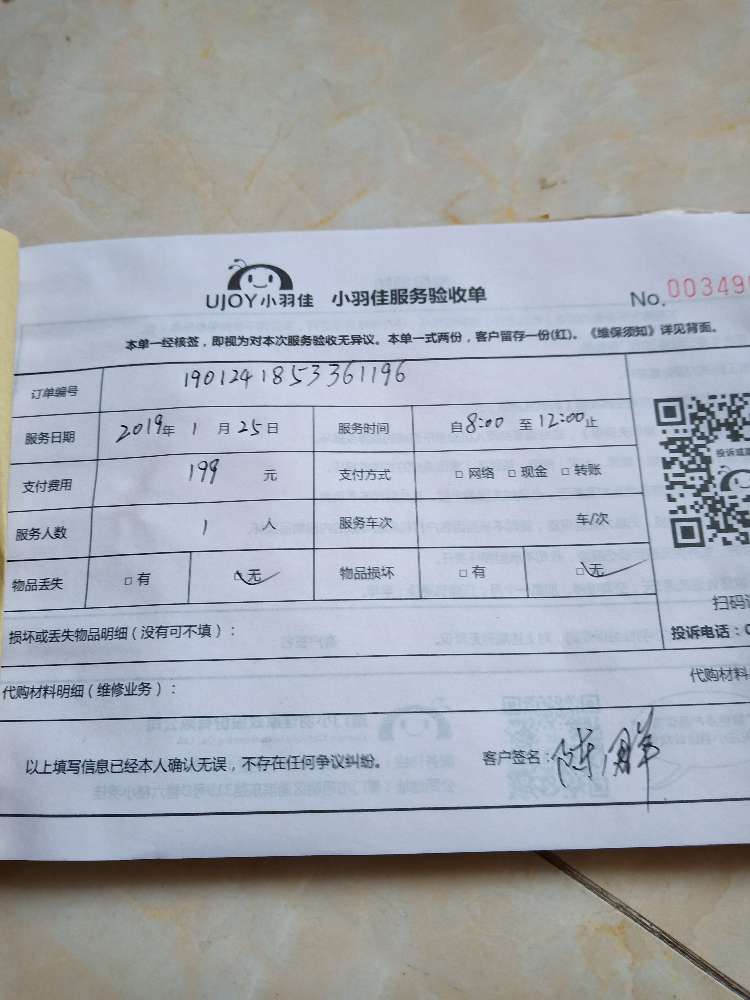 UJOY小羽佳 小羽佳服务验收单 No. 00349
本单一经核签，即视为对本次服务验收无异议。本单一式两份，客户留存一份(红)。《维保须知》详见背面。
订单编号 190124185336 1196
服务日期 2019年 1 月 25 日 服务时间 自8:00 至 12:00止
支付费用 199 元 支付方式 □ 网络 □ 现金 □ 转账
投诉或
服务人数 1 人 服务车次 车/次
物品丢失 □ 有 □ 无 物品损坏 □ 有 □ 无
扫码
损坏或丢失物品明细（没有可不填）：
投诉电话：
代购材料明细（维修业务）：
代购材料
以上填写信息已经本人确认无误，不存在任何争议纠纷。 客户签名：